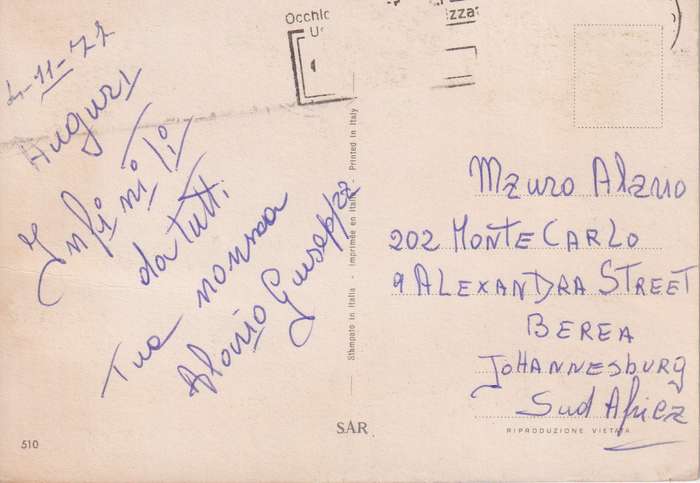 4-11-77
Auguri
Infiniti
da tutti.
Tua nonna
Giuseppa
Occhio
zza
Stampato in Italia - Imprimée en Italie - Printed in Italy
Mauro
202 MONTE CARLO
9 ALEXANDRA STREET
BEREA
JOHANNESBURG
Sud Africa
RIPRODUZIONE VIETATA
SAR
510